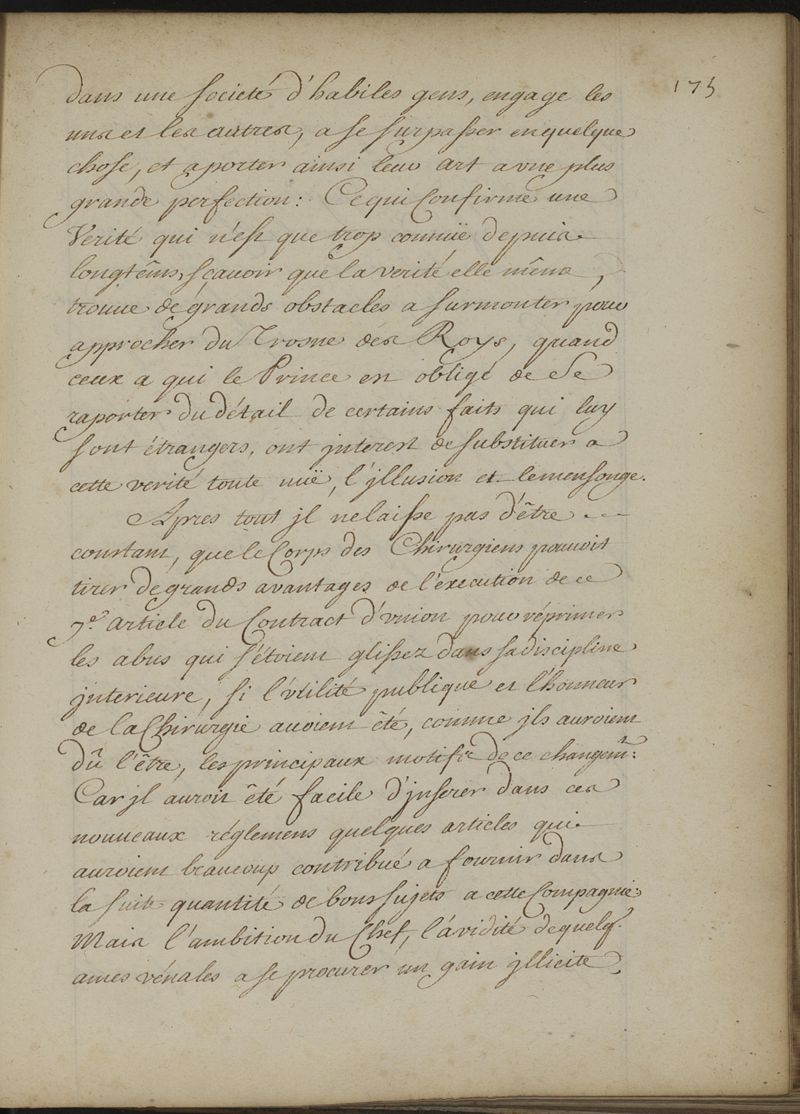 175
dans une societé d'habiles gens, engage les
uns et les autres, a se surpasser en quelque
chose, et aporter ainsi leur art a vne plus
grande perfection: Ce qui Confirme une
Verité qui n'est que trop connuë depuis
longtêms, sçavoir que la verité elle même,
trouue de grands obstacles a surmonter pour
approcher du Trosne des Roys, quand
ceux a qui le Prince est obligé de Se
raporter du détail de certains faits qui luy
sont étrangers, ont jnterest de substituer a
cette verité toute nuë, l'jllusion et le mensonge.
Apres tout jl ne laisse pas d'être
constant, que le Corps des Chirurgiens pouuoit
tirer de grands avantages de l'éxecution de ce
7.e Article du Contract d'vnion pour réprimer
les abus qui s'étoient glissez dans sa discipline
jnterieure, si l'vtilité publique et l'honneur
de la Chirurgie auoient été, comme jls auroient
dû l'être, les principaux motifs de ce changemt:
Car jl auroit été facile d'jnserer dans ces
nouueaux réglemens quelques articles qui
auroient beaucoup contribué a fournir dans
la suite quantité de bons sujets a cette Compagnie
Mais l'ambition du Chef, l'avidité de quelq.
ames vénales a se procurer un gain jllicite,